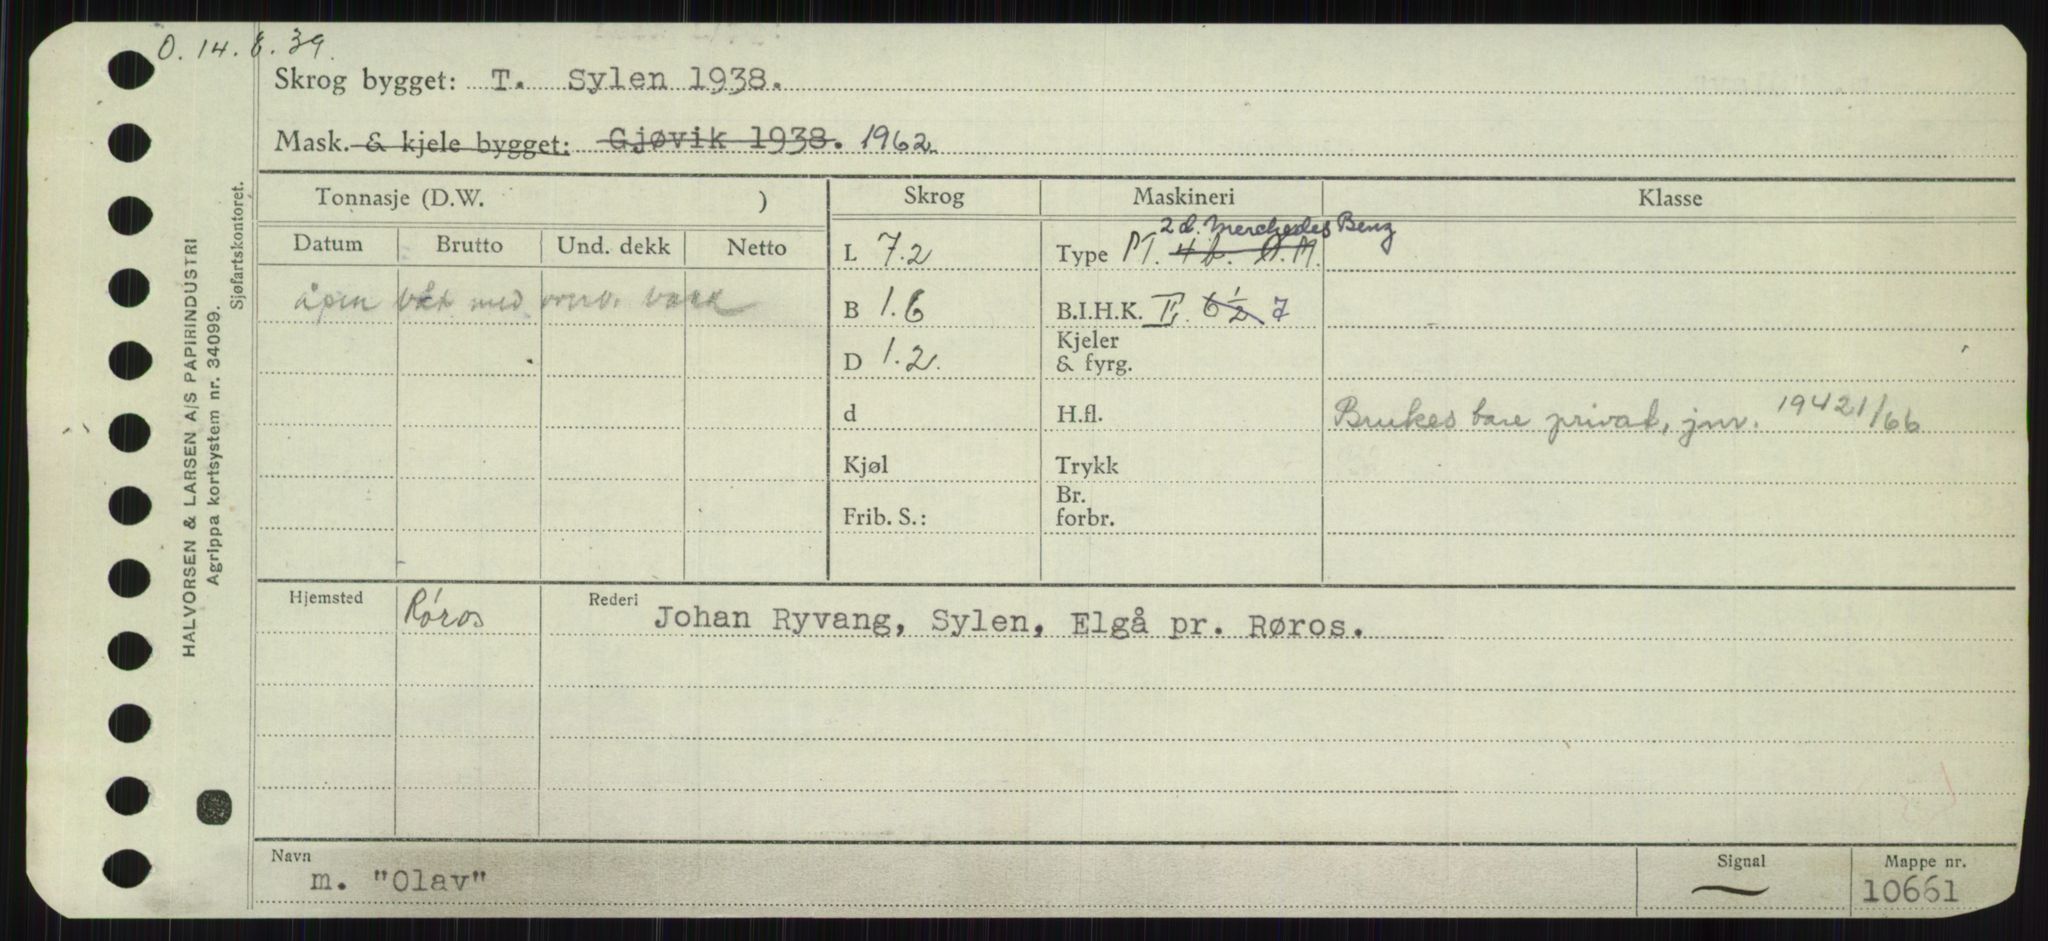 O. 14. 8. 39.
Skrog bygget: T. Sylen 1938.
Mask. & kjele bygget: Gjøvik 1938. 1962.
Tonnasje (D.W. )
Skrog
Maskineri
Klasse
Datum
Brutto
Und. dekk
Netto
L 7.2
2 d. Merchedes Benz
Type PT. 4 b.
åpen båt med
B 1.6
B.I.H.K. II. 6 1/2 7
D 1.2.
Kjeler
& fyrg.
d
H.fl.
Brukes bare privat, jnr. 19421/66
Kjøl
Trykk
Frib. S.:
Br.
forbr.
Hjemsted
Røros
Rederi
Johan Ryvang, Sylen, Elgå pr. Røros.
Navn
m. "Olav"
Signal
Mappe nr.
10661
HALVORSEN & LARSEN A/S PAPIRINDUSTRI
Agrippa kortsystem nr. 34099.
Sjøfartskontoret.